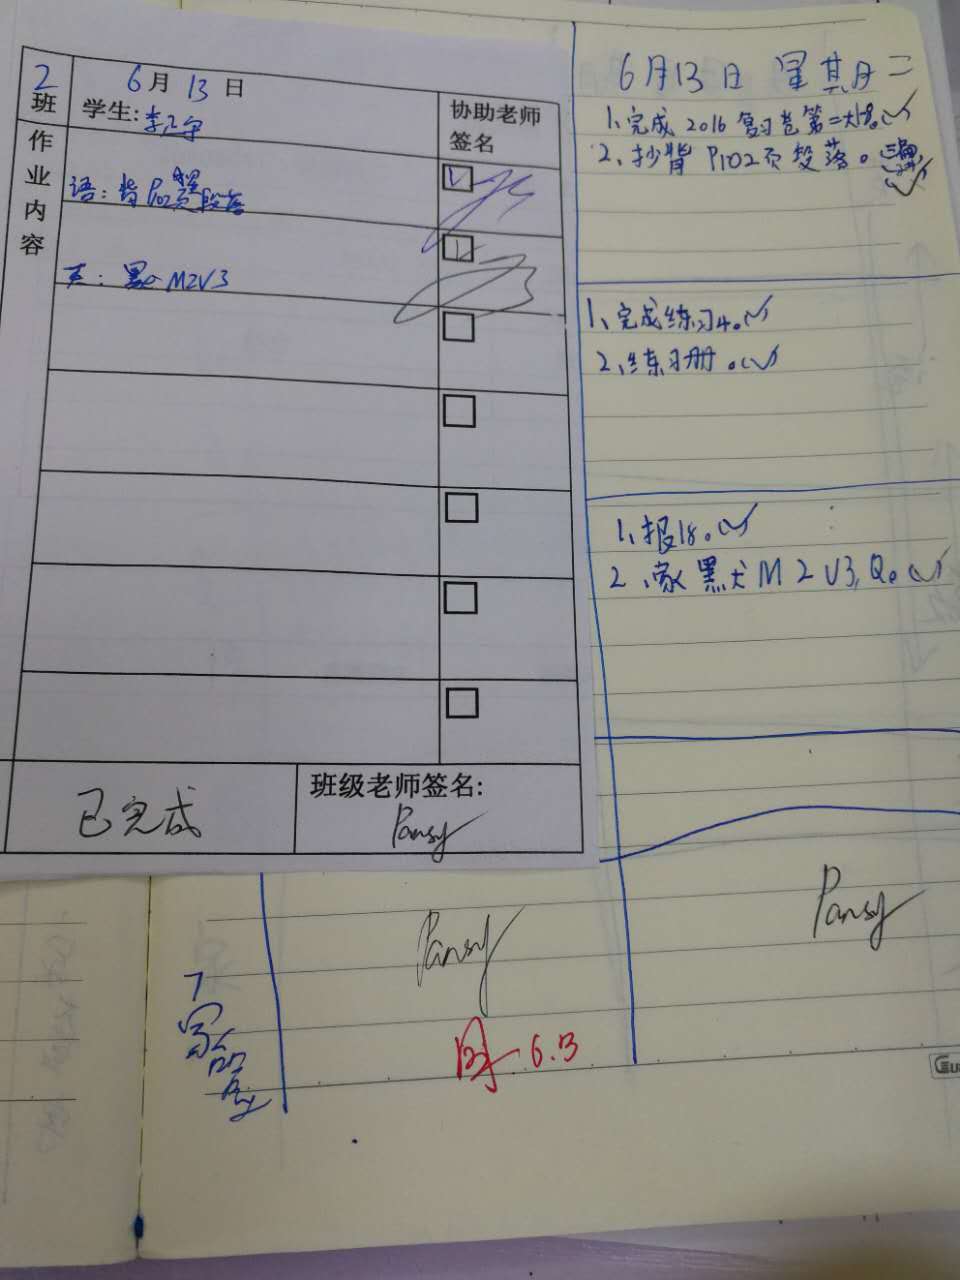 2班
6月13日
学生:
协助老师
签名
作业内容
语：背P102页段落
英：黑犬M2V3
已完成
班级老师签名:
Pansy
6月13日 星期二
1、完成2016复习卷第二大题。
2、抄背P102页段落。
1、完成练习4。
2、练习册。
1、报18。
2、家 黑犬M2V3,Q。
Pansy
Pansy
6.13